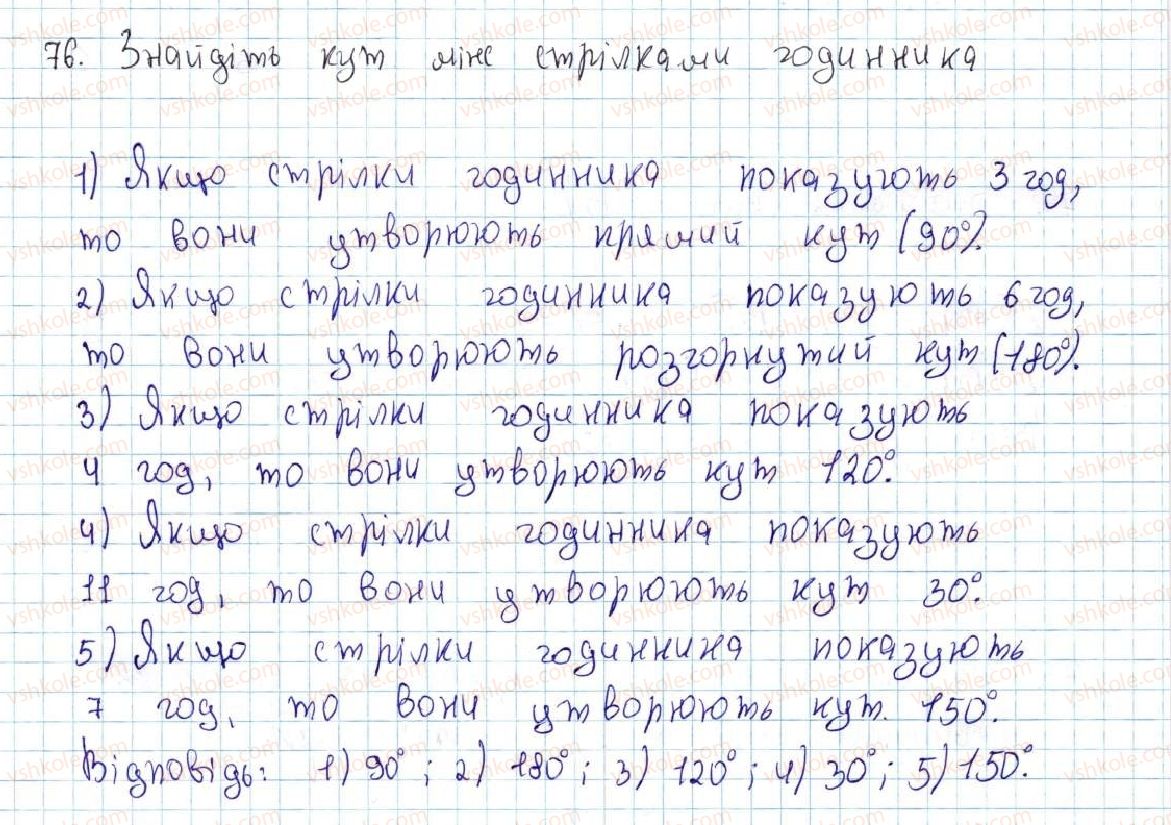 76. Знайдіть кут між стрілками годинника
1) Якщо стрілки годинника показують 3 год,
то вони утворюють прямий кут (90°).
2) Якщо стрілки годинника показують 6 год,
то вони утворюють розгорнутий кут (180°).
3) Якщо стрілки годинника показують
4 год, то вони утворюють кут 120°.
4) Якщо стрілки годинника показують
11 год, то вони утворюють кут 30°.
5) Якщо стрілки годинника показують
7 год, то вони утворюють кут. 150°.
Відповідь: 1) 90°; 2) 180°; 3) 120°; 4) 30°; 5) 150°.
vshkole.com